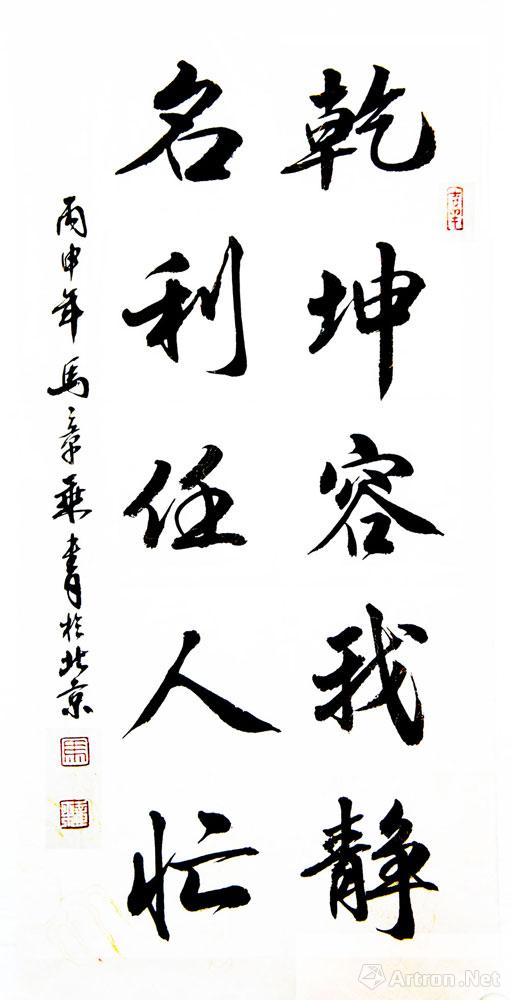 乾坤容我静
名利任人忙
丙申年馬章乘書於北京
Artron.Net